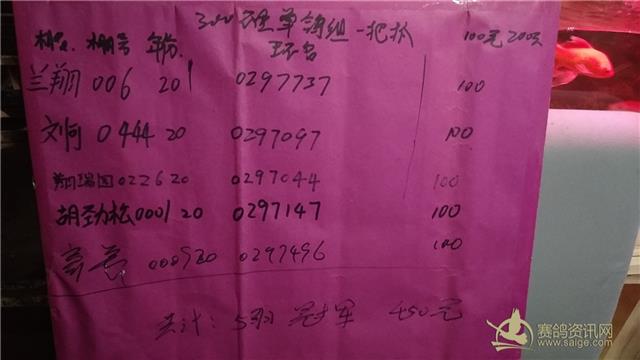 棚名 棚号 年份 300公里单鸽组一把抓 100元 200元
环号
兰翔 006 20 0297737 100
刘向 0444 20 0297097 100
瑞国 0226 20 0297044 100
胡劲松 0001 20 0297147 100
0009 20 0297496 100
共计: 5羽 冠军 450元
赛鸽资讯网
www.saige.com